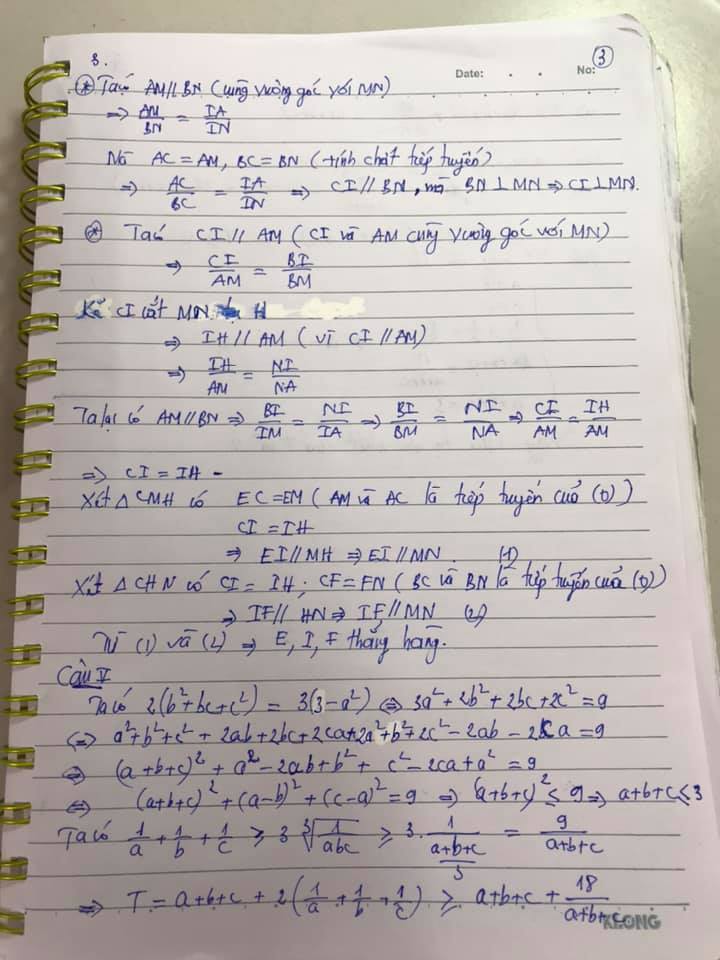 3.
③
Date: . . No:
⊛ Ta có AM // BN (cùng vuông góc với MN)
⇒ AM/BN = IA/IN
Mà AC = AM, BC = BN (tính chất tiếp tuyến)
⇒ AC/BC = IA/IN ⇒ CI // BN, mà BN ⊥ MN ⇒ CI ⊥ MN.
⊛ Ta có CI // AM (CI và AM cùng vuông góc với MN)
⇒ CI/AM = BI/BM
Kẻ CI cắt MN H
⇒ IH // AM (vì CI // AM)
⇒ IH/AM = NI/NA
Ta lại có AM // BN ⇒ BI/IM = NI/IA ⇒ BI/BM = NI/NA ⇒ CI/AM = IH/AM
⇒ CI = IH -
Xét △CMH có EC = EM (AM và AC là tiếp tuyến của (O))
CI = IH
⇒ EI // MH ⇒ EI // MN. (1)
Xét △CHN có CI = IH; CF = FN (BC và BN là tiếp tuyến của (O))
⇒ IF // HN ⇒ IF // MN (2)
Từ (1) và (2) ⇒ E, I, F thẳng hàng.
Câu V
Ta có 2(b²+bc+c²) = 3(3-a²) ⇔ 3a²+2b²+2bc+2c² = 9
⇔ a²+b²+c²+2ab+2bc+2ca+2a²+b²+c²-2ab-2ca = 9
⇔ (a+b+c)²+a²-2ab+b²+c²-2ca+a² = 9
⇔ (a+b+c)²+(a-b)²+(c-a)² = 9 ⇒ (a+b+c)² ≤ 9 ⇒ a+b+c ≤ 3
Ta có 1/a + 1/b + 1/c ≥ 3 ∛(1/abc) ≥ 3 · 1/((a+b+c)/3) = 9/(a+b+c)
⇒ T = a+b+c + 2(1/a + 1/b + 1/c) ≥ a+b+c + 18/(a+b+c)
KLONG